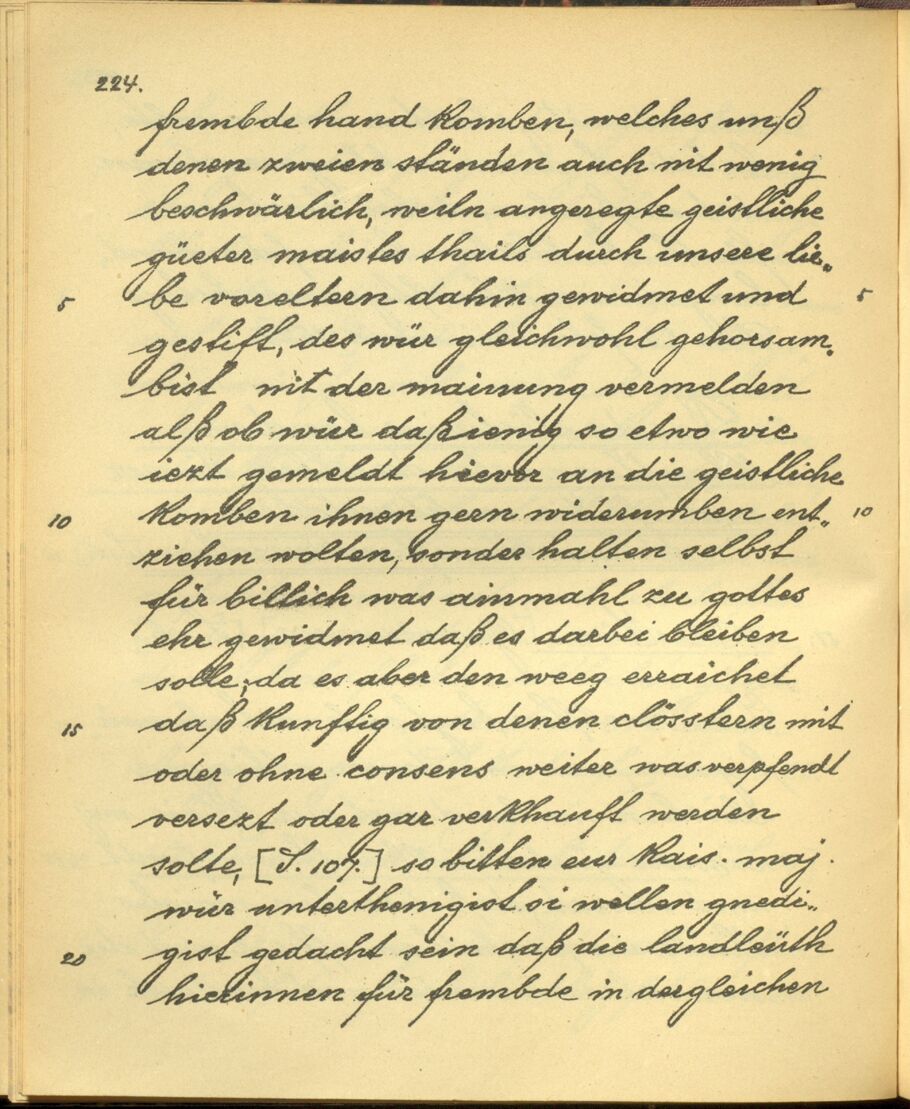 224.
frembde hand komben, welches unß
denen zweien ständen auch nit wenig
beschwärlich, weiln angeregte geistliche
güeter maistes thails durch unsere lie„
5 be voreltern dahin gewidmet und 5
gestift, des wür gleichwohl gehorsam„
bist nit der mainung vermelden
alß ob wür daßienig so etwo wie
iezt gemeldt hievor an die geistliche
10 komben ihnen gern widerumben ent„ 10
ziehen wolten, sonder halten selbst
für billich was ainmahl zu gottes
ehr gewidmet daß es darbei bleiben
solle; da es aber den weeg erraichet
15 daß kunftig von denen clösstern mit
oder ohne consens weiter was verpfendt
versezt oder gar verkhauft werden
solte, [S. 107.] so bitten eur kais. maj.
wür unterthenigist si wellen gnedi„
20 gist gedacht sein daß die landleüth
hierinnen für frembde in dergleichen